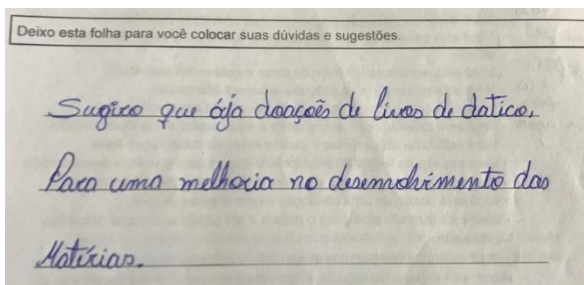 Deixo esta folha para você colocar suas dúvidas e sugestões.
Sugiro que aja doaçoẽs de livros de datico,
Para uma melhoria no desenvolvimento das
Matérias.